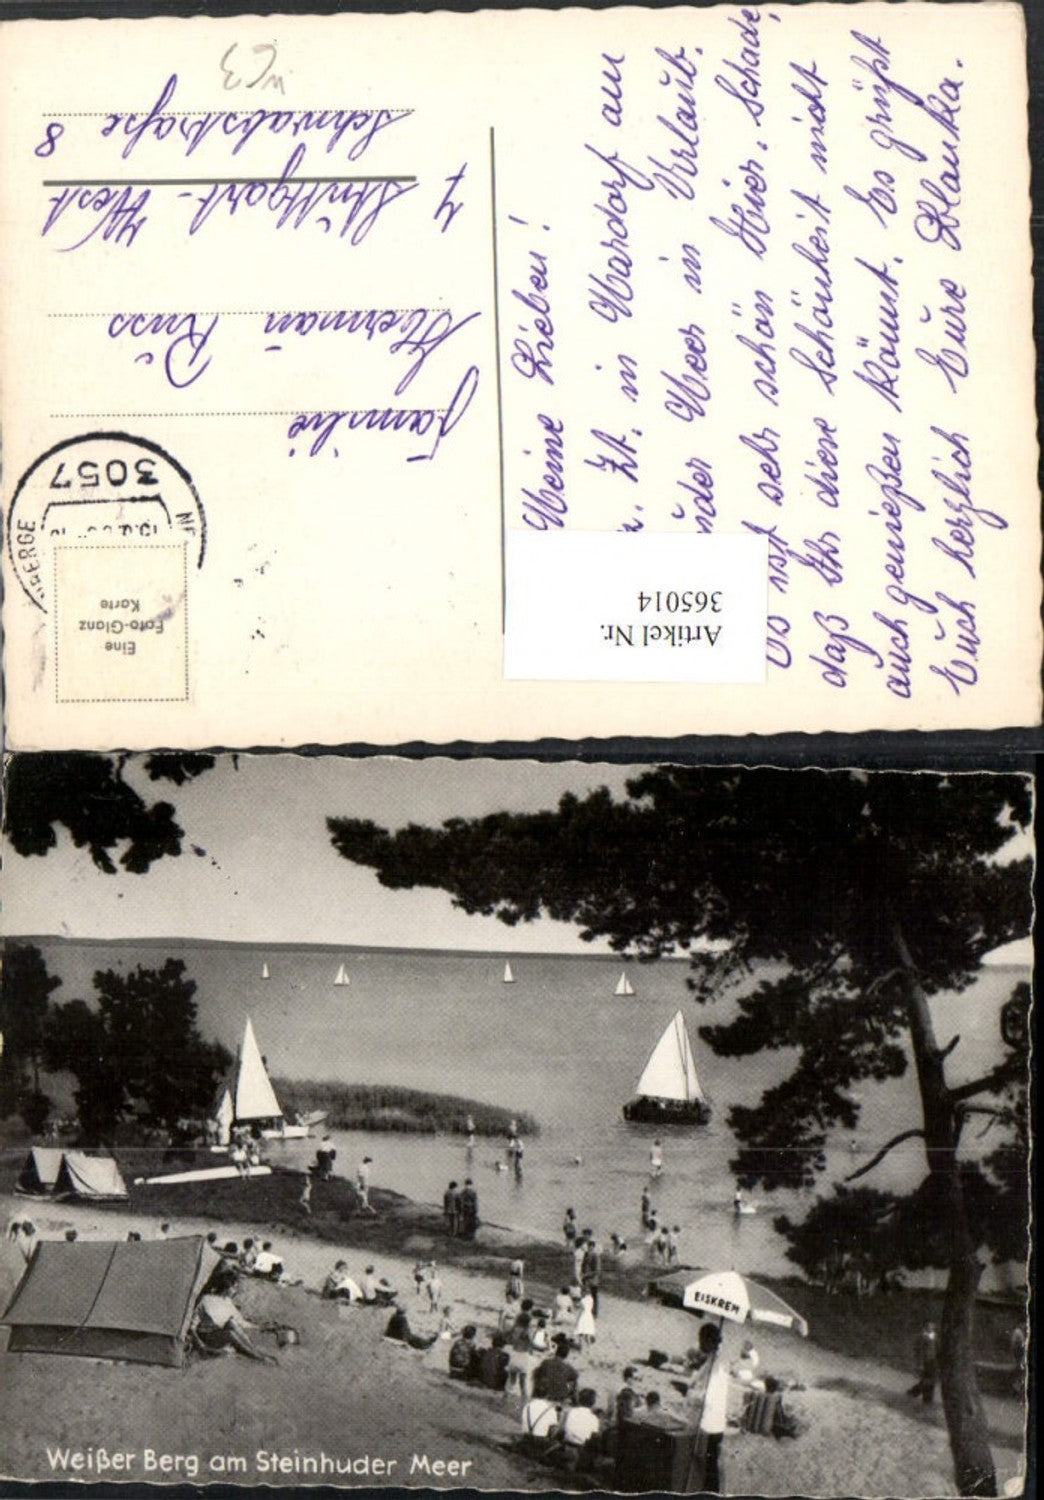 WC3
Meine Lieben!
Zt. in Mardorf am
Meer in Urlaub.
Es ist sehr schön hier. Schade,
daß Ihr diese Schönheit nicht
auch genießen könnt. Es grüßt
Euch herzlich Eure Blanka.
Familie
Herman Russ
7 Stuttgart-West
Schwabstraße 8
3057
Eine
Foto-Glanz
Karte
Artikel Nr.
365014
EISKREM
Weißer Berg am Steinhuder Meer